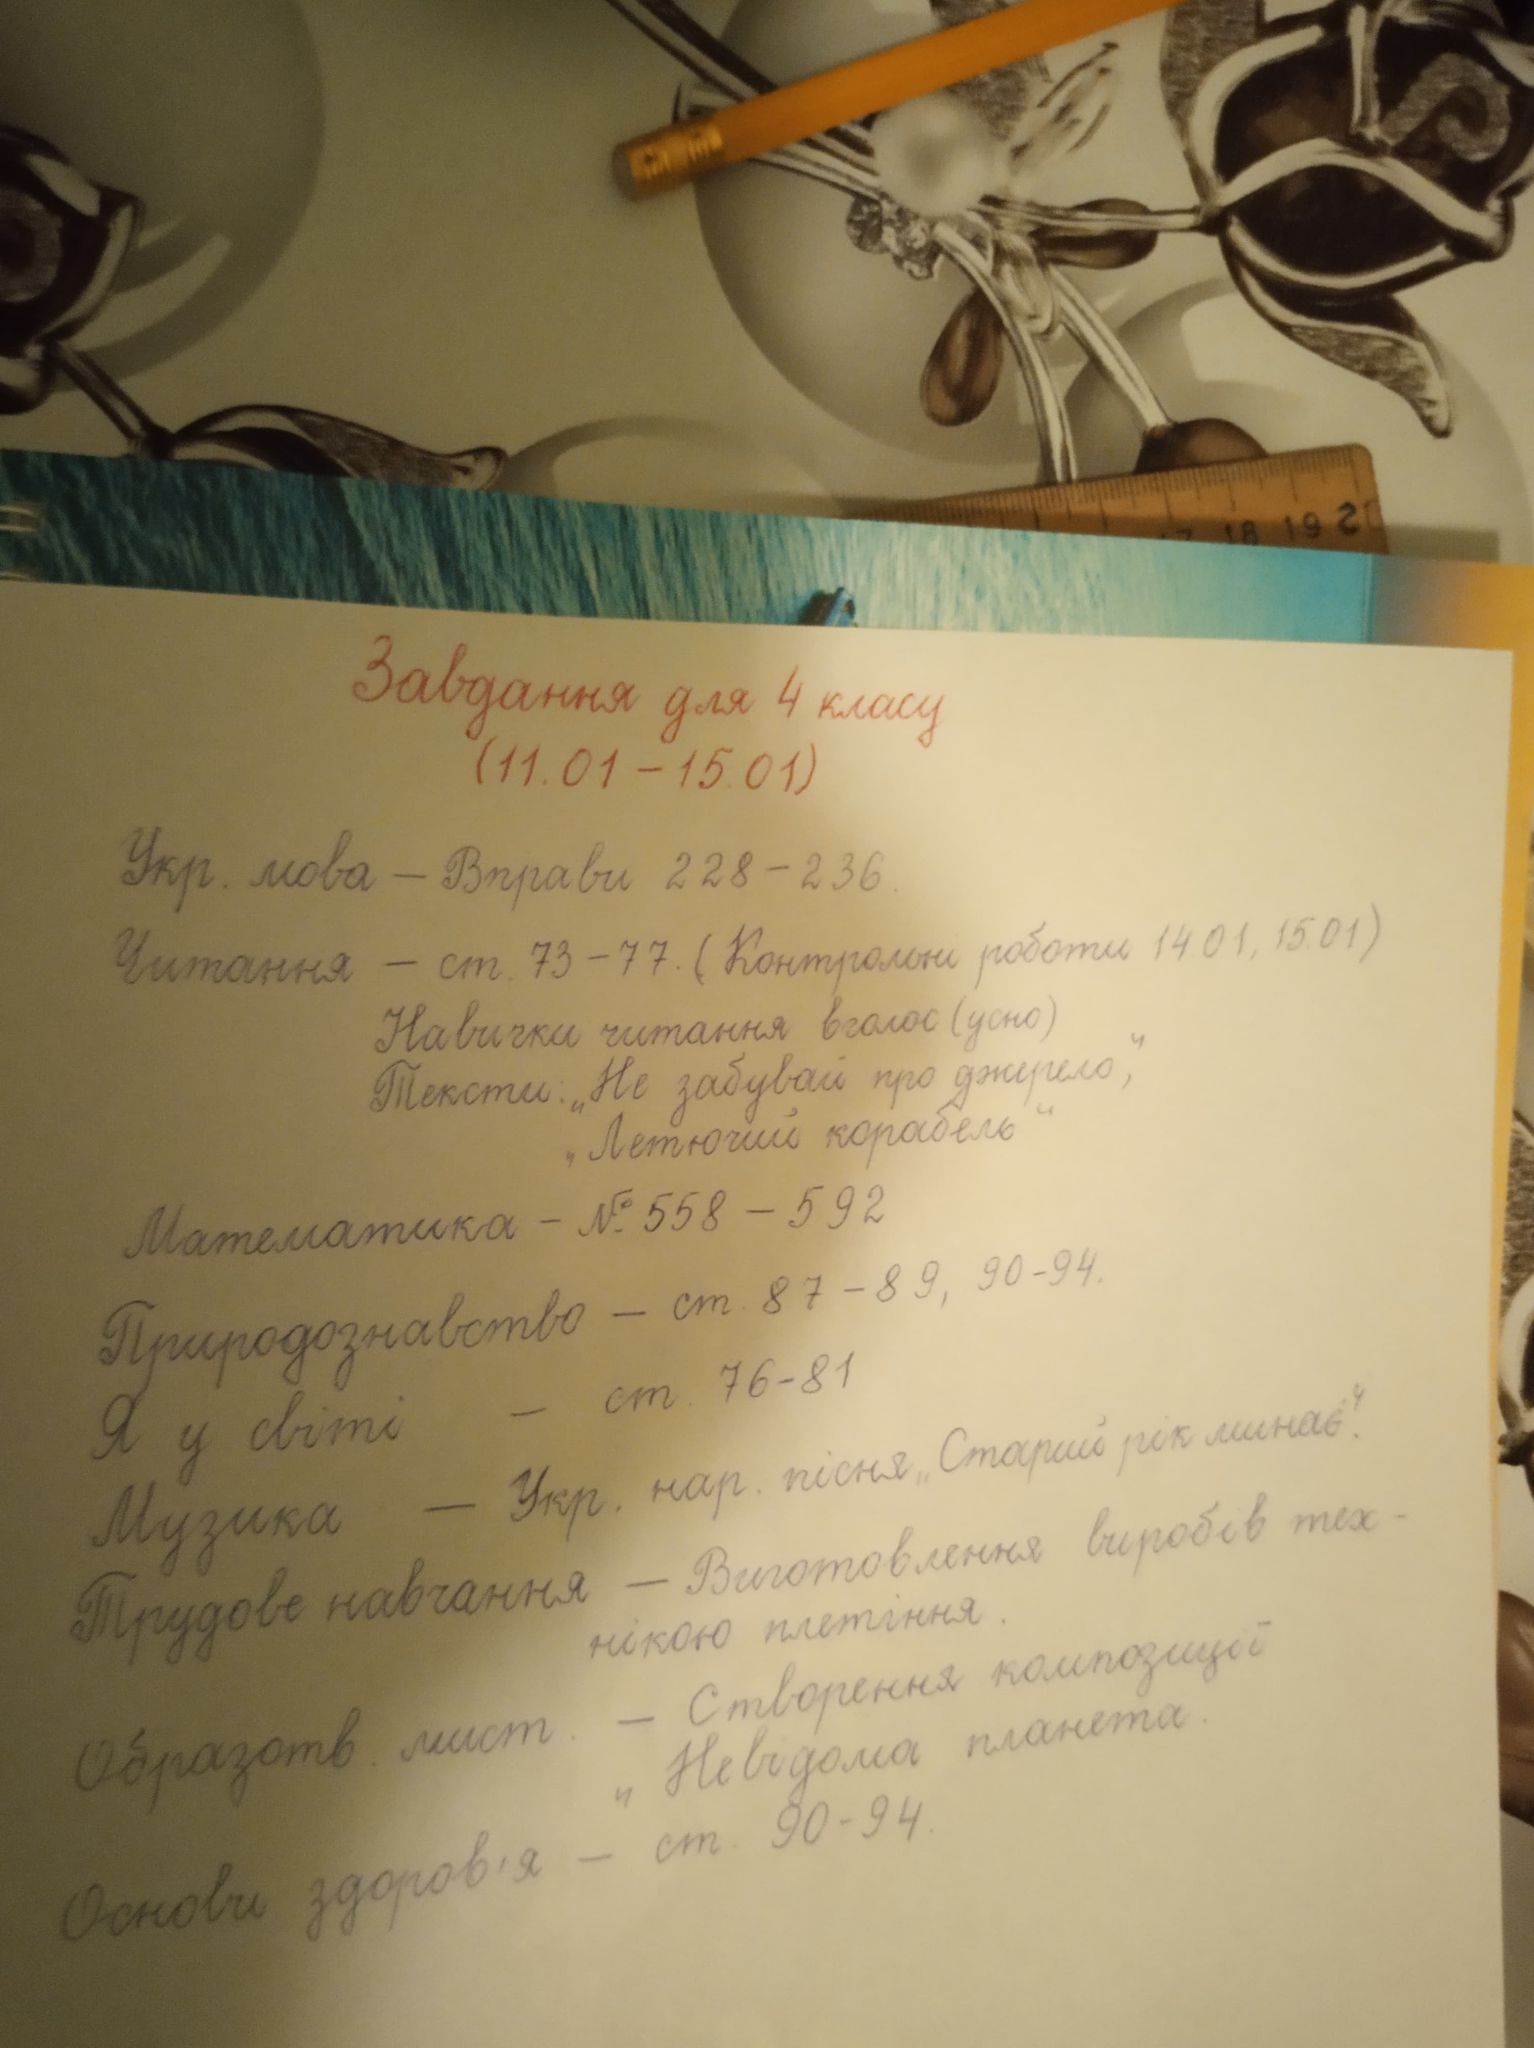 17 18 19 2
Завдання для 4 класу
(11.01 – 15.01)
Укр. мова – Вправи 228 – 236.
Читання – ст. 73 – 77. (Контрольні роботи 14.01, 15.01)
Навички читання вголос (усно)
Тексти: „Не забувай про джерело",
„Летючий корабель"
Математика – № 558 – 592
Природознавство – ст. 87 – 89, 90-94.
Я у світі – ст. 76-81
Музика – Укр. нар. пісня „Старий рік минає".
Трудове навчання – Виготовлення виробів тех-
нікою плетіння.
Образотв. мист. – Створення композиції
„Невідома планета.
Основи здоров'я – ст. 90-94.